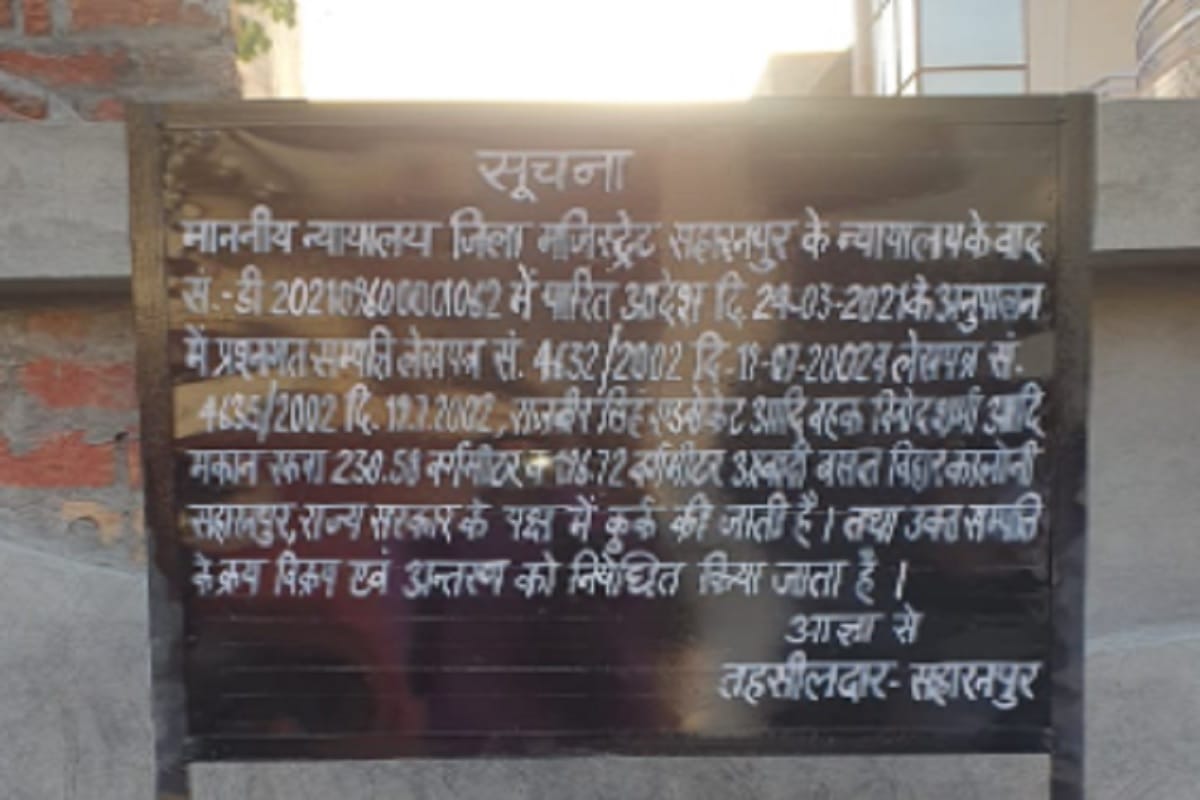 सूचना
माननीय न्यायालय जिला मजिस्ट्रेट सहारनपुर के न्यायालय के वाद
सं.-डी 202109600001062 में पारित आदेश दि. 24-03-2021 के अनुपालन
में प्रश्नगत सम्पत्ति लेखपत्र सं. 4632/2002 दि.-19-07-2002 व लेखपत्र सं.
4635/2002 दि. 19.7.2002, राजबीर सिंह एडवोकेट आदि बहक विनोद शर्मा आदि
मकान रकबा 230.58 वर्गमीटर व वर्गमीटर बसन्त विहार कालोनी
सहारनपुर, राज्य सरकार के पक्ष में कुर्क की जाती है। तथा उक्त सम्पत्ति
के क्रय विक्रय एवं अन्तरण को निषेधित किया जाता है।
आज्ञा से
तहसीलदार- सहारनपुर